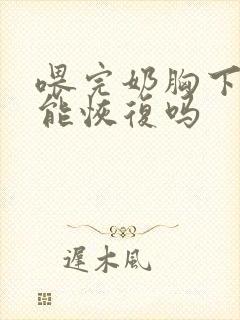 喂完奶胸下
能恢復吗
遲木風